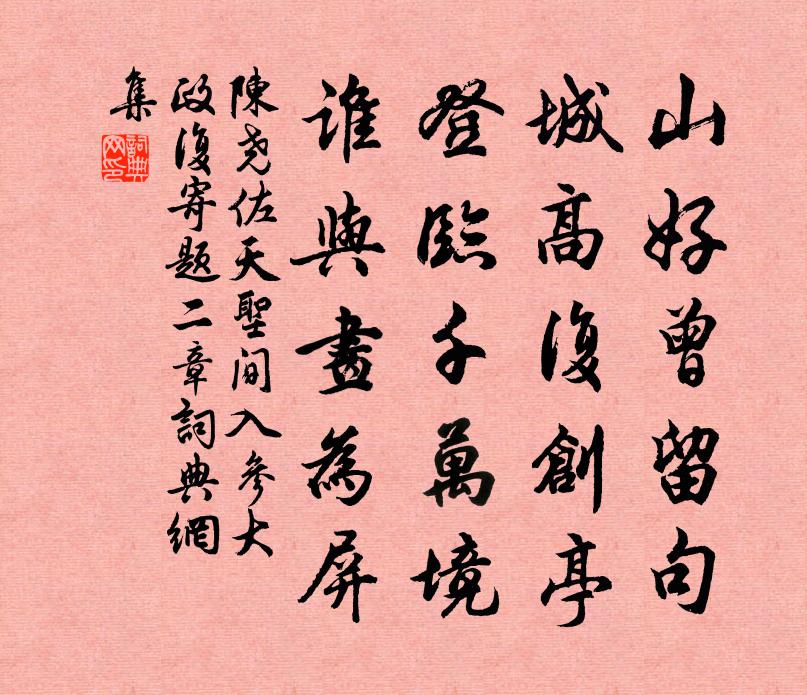 山好曾留句
城高復創亭
登臨千萬境
誰與畫為屏
陳尧佐天聖间入參大
政復寄題二章詞典網
集
詞典
网印